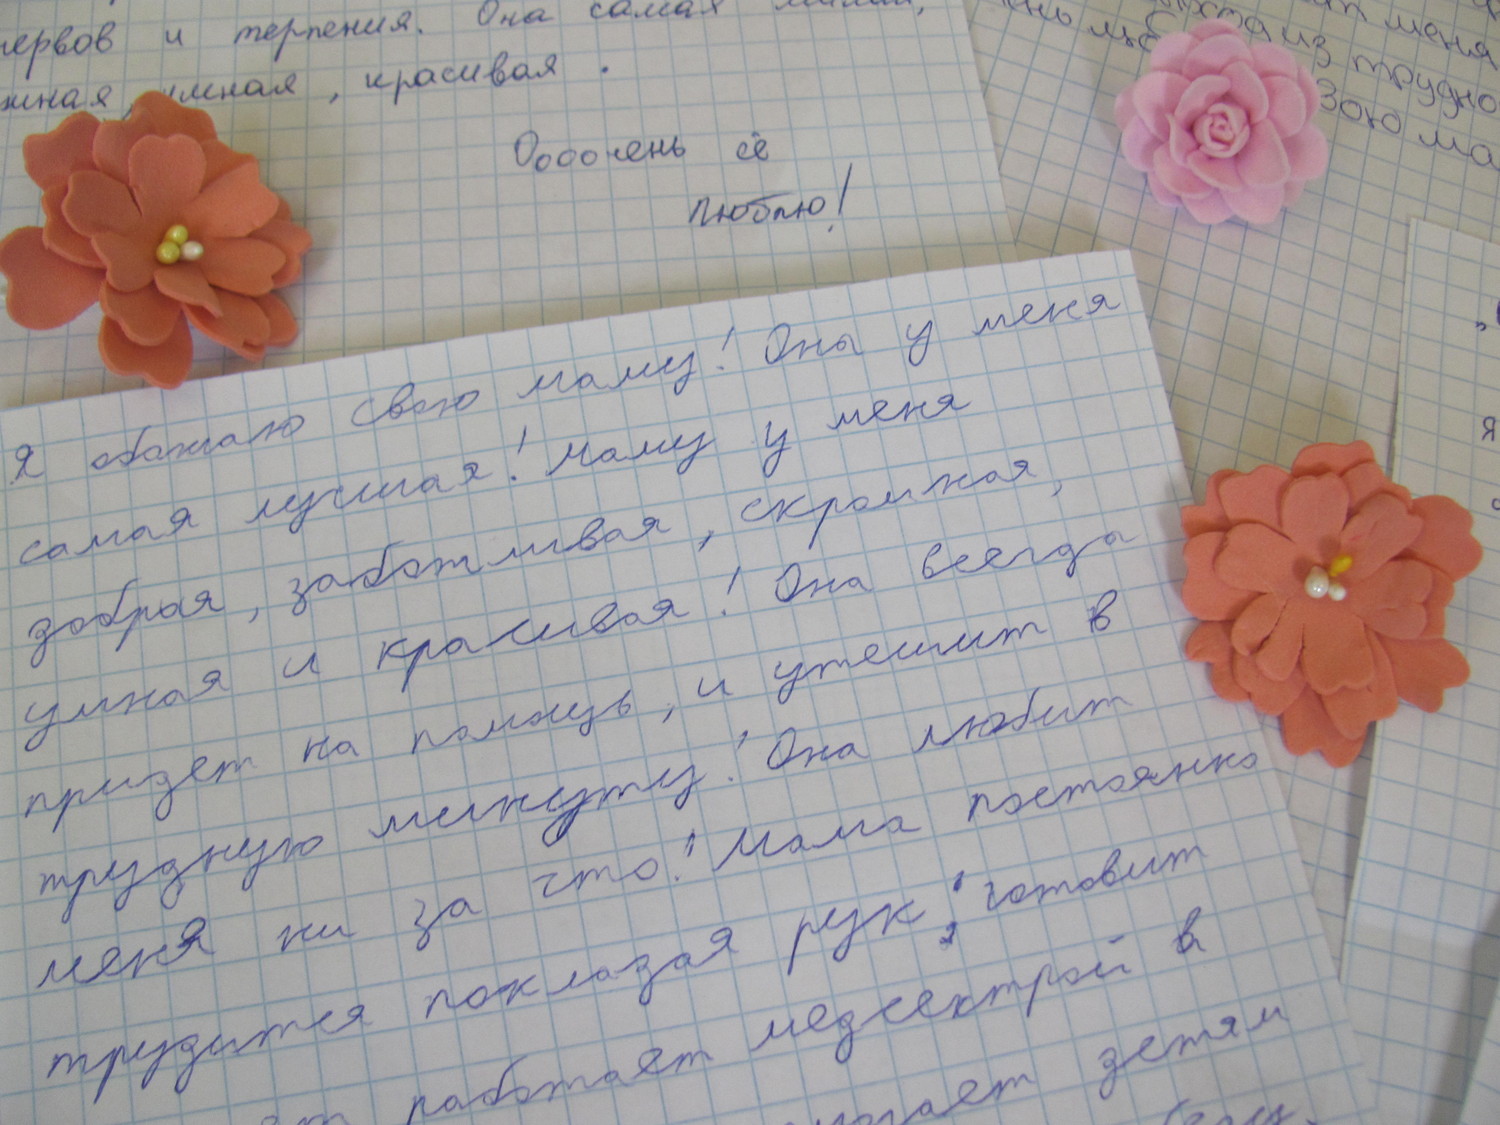 нервов и терпения. Она самая милая,
умная, красивая.
Оооочень её
люблю!
меня
из трудно
Зою ма
Я обажаю свою маму! Она у меня
самая лучшая! Маму у меня
добрая, заботливая, скромная,
умная и красивая! Она всегда
придет на помощь, и утешит в
трудную минуту! Она любит
меня ни за что! Мама постоянно
трудится покладая рук, готовит
работает медсектрой в
детям
я